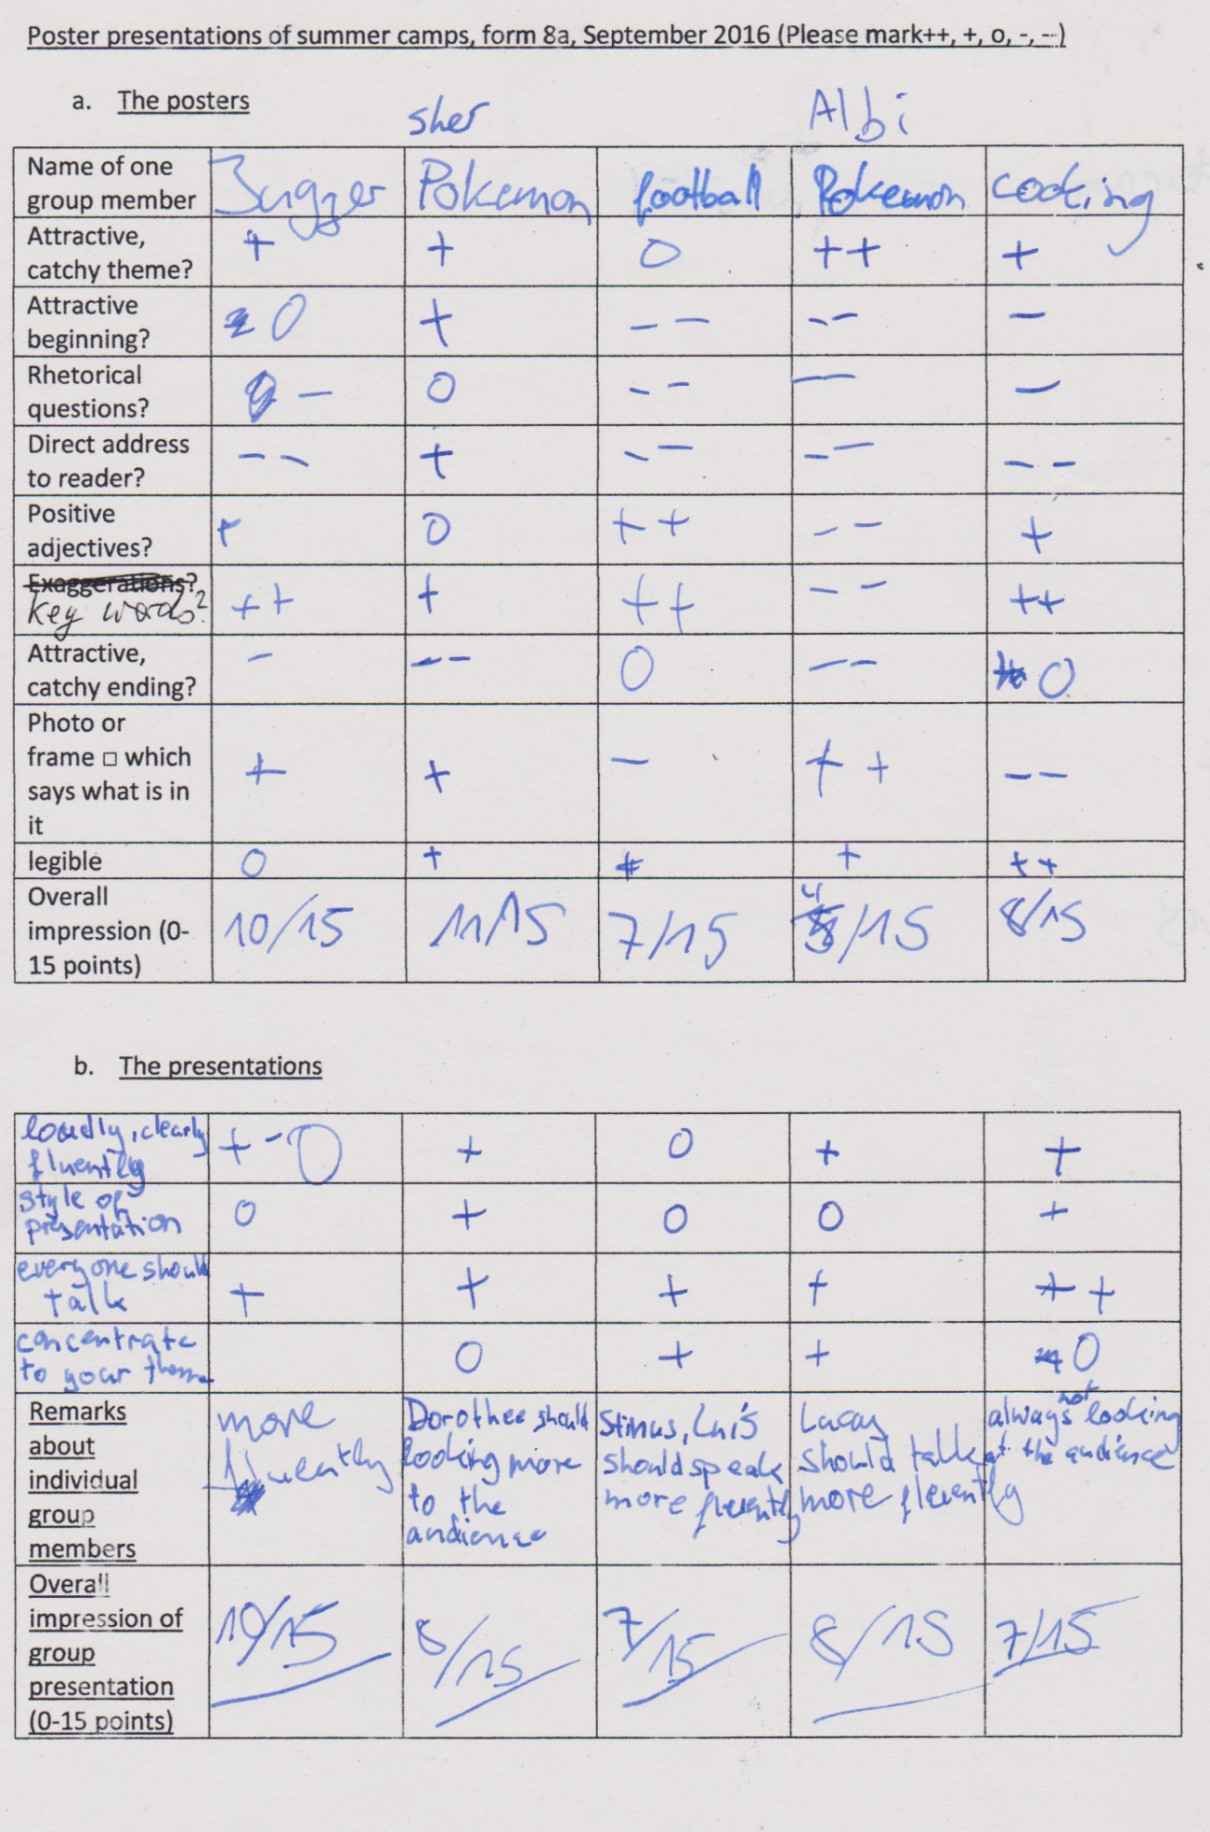 Poster presentations of summer camps, form 8a, September 2016 (Please mark++, +, o, -, --)
a. The posters
sher Albi
Name of one
group member Jugger Pokemon football Pokemon cooking
Attractive,
catchy theme? + + O ++ +
Attractive
beginning? O + -- -- -
Rhetorical
questions? - O -- - -
Direct address
to reader? -- + -- -- --
Positive
adjectives? + O ++ -- +
Exaggerations?
Key words? ++ + ++ -- ++
Attractive,
catchy ending? - -- O -- O
Photo or
frame □ which
says what is in
it + + - ++ --
legible O + + + ++
Overall
impression (0-
15 points) 10/15 11/15 7/15 4/15 8/15
b. The presentations
loudly, clearly
fluently + - O + O + +
style of
presentation O + O O +
everyone should
talk + + + + ++
concentrate
to your theme O + + O
Remarks
about
individual
group
members
more
fluently
Dorothee should
looking more
to the
audience
Luis
should speak
more fluently
should talk
more fluently
always not looking
at the audience
Overall
impression of
group
presentation
(0-15 points) 10/15 8/15 7/15 8/15 7/15